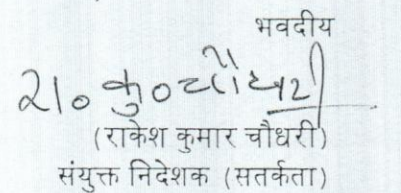 भवदीय
रा॰ कु॰ चौधरी
(राकेश कुमार चौधरी)
संयुक्त निदेशक (सतर्कता)